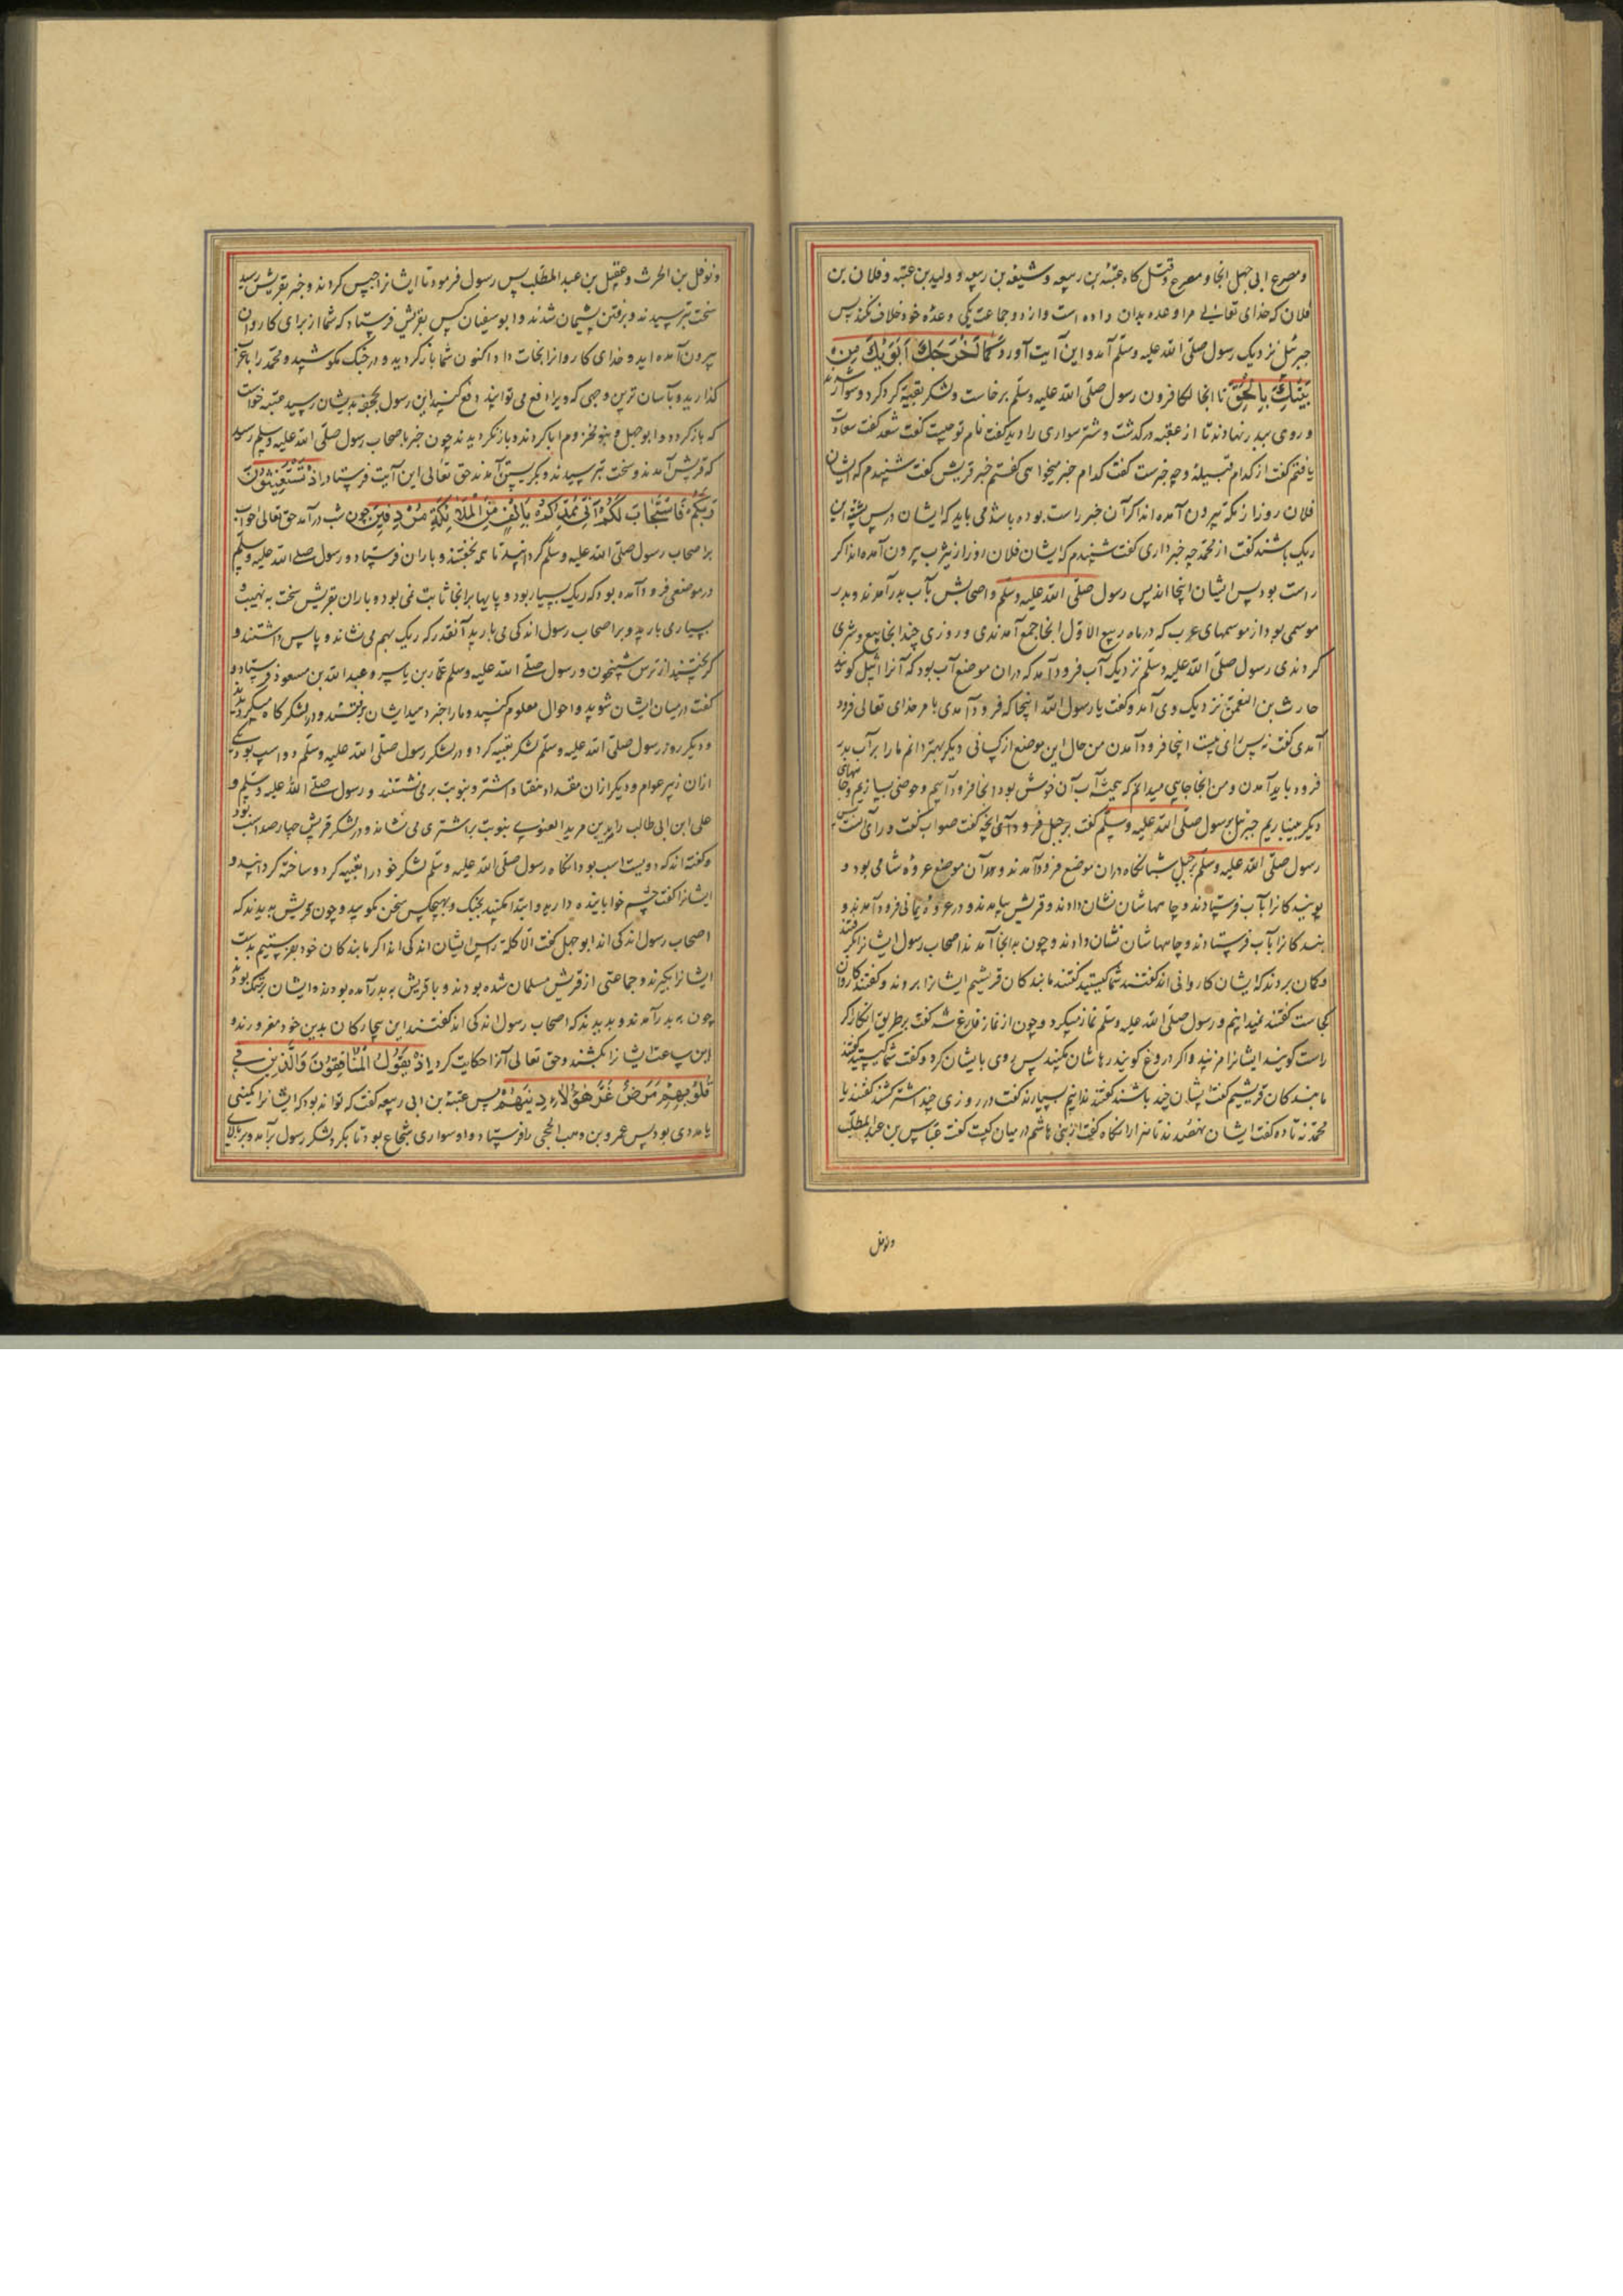 و مصرع ابی جهل انجا و مصرع و قتل کاه عتبة بن ربیعه و شیبة بن ربیعه و ولید بن عتبه و فلان بن
فلان که خدای تعالی مرا وعده بدان داده است و از دو جماعت یکی و وعده خود خلاف نکند پس
جبرئیل نزدیک رسول صلّی الله علیه وسلّم آمد و این آیت آورد کَمَا اَخْرَجَكَ رَبُّكَ مِنْ
بَیْتِكَ بِالْحَقِّ تا انجا لکافرون رسول صلّی الله علیه وسلّم برخاست و لشکر تعبیه کرد کرد و سوار شدند
و روی ببدر نهادند تا از عقبه درگذشت و شتر سواری را دید گفت نام تو چیست گفت سعد گفت سعادت
یافتم گفت از کدام قبیله و چه خبرست گفت کدام خبر میخواهی گفتم خبر قریش گفت شنیدم که ایشان
فلان روز از مکه بیرون آمده اند اگر آن خبر راست بوده باشد می باید که ایشان در پس پشته این
ریک باشند گفت از محمّد چه خبر داری گفت شنیدم که ایشان فلان روز از یثرب بیرون آمده اند اگر
راست بود پس ایشان اینجا اند پس رسول صلّی الله علیه وسلّم و اصحابش بآب بدر آمدند و بدر
موسمی بود از موسمهای عرب که در ماه ربیع الاوّل انجا جمع آمدندی و روزی چند انجا بیع و شری
کردندی رسول صلّی الله علیه وسلّم نزدیک آب فرود آمد که دران موضع آب بود که آنرا اثیل گویند
حارث بن النعمن نزدیک وی آمد و گفت یا رسول الله اینجا که فرود آمدی بامر خدای تعالی فرود
آمدی گفت نه پس رای نیست اینجا فرود آمدن من حال این موضع از کسانی دیگر بهتر دانم ما را بر آب بدر
فرود باید آمدن و من انجا جایی میدانم که آب آن خوش بود انجا فرود آییم و حوضی بسازیم و چاههای
دیگر بینباریم جبرئیل بر رسول صلّی الله علیه وسلّم گفت بر جبل فرود آی انچه گفت صواب گفت و رای است پس
رسول صلّی الله علیه وسلّم بر جبل شبانکاه دران موضع فرود آمدند و آن موضع عروه شامی بود و
بندکانرا بآب فرستادند و جامهاشان نشان دادند و قریش بیامدند و در عروه یمانی فرود آمدند و
بندکانرا بآب فرستادند و جامهاشان نشان دادند و چون بانجا آمدند اصحاب رسول ایشانرا بگرفتند
و کمان بردند که ایشان کاروانی اند گفتند شما کیستید گفتند ما بندکان قریشیم ایشانرا بردند و گفتند کاروان
کجاست گفتند نمیدانیم و رسول صلّی الله علیه وسلّم نماز میکرد و چون از نماز فارغ شد گفت بر طریق انکار اگر
راست گویند ایشانرا مزنید و اگر دروغ گویند رهاشان مکنید پس روی بایشان کرد و گفت شما کیستید گفتند
ما بندکان قریشیم گفت ایشان چند باشند گفتند ندانیم بسیارند گفت در روزی چند اشتر کشند گفتند یا
محمّد نه تا ده گفت ایشان نهصدند تا هزار انکاه گفت از بنی هاشم در میان کیست گفت عباس بن عبد المطلب
ونوفل
و نوفل بن الحرث و عقیل بن عبد المطلب پس رسول فرمود تا ایشانرا حبس کردند و خبر بقریش رسید
سخت بترسیدند و برفتن پشیمان شدند و ابو سفیان کس بقریش فرستاد که شما از برای کاروان
بیرون آمده اید و خدای کاروانرا نجات داد اکنون شما باز گردید و در جنک مکوشید و محمّد را با عرب
گذارید و بآسان ترین وجهی که ویرا دفع می توانید دفع کنید این رسول بجحفه بدیشان رسید عتبه خواست
که باز گردد و ابو جهل و بنو مخزوم ابا کردند و باز نگردیدند چون خبر باصحاب رسول صلّی الله علیه وسلّم رسید
که قریش آمدند و سخت بترسیدند و بگریستن آمدند حق تعالی این آیت فرستاد اِذْ تَسْتَغِیثُونَ
رَبَّکُمْ فَاسْتَجَابَ لَکُمْ اَنِّی مُمِدُّکُمْ بِاَلْفٍ مِنَ الْمَلَائِکَةِ مُرْدِفِینَ چون شب درآمد حق تعالی خواب
بر اصحاب رسول صلّی الله علیه وسلّم گردانید تا همه بخفتند و باران فرستاد و رسول صلی الله علیه وسلّم
در موضعی فرود آمده بود که ریک بسیار بود و پایها برانجا ثابت نمی بود و باران بقریش سخت
بسیاری بارید و بر اصحاب رسول اندکی می بارید آنقدر که ریک بهم می نشاند و پاس داشتند و
از ترس شبیخون و رسول صلی الله علیه وسلم عمّار بن یاسر و عبد الله بن مسعود فرستاد و
گفت در میان ایشان شوید و احوال معلوم کنید و ما را خبر دهید ایشان برفتند و در لشکرکاه میکردیدند
و دیگر روز رسول صلّی الله علیه وسلّم لشکر تعبیه کرد و در لشکر رسول صلّی الله علیه وسلّم دو اسب بود یکی
ازان زبیر عوام و دیگر ازان مقداد و هفتاد اشتر و بنوبت بر می نشستند و رسول صلی الله علیه وسلم و
علی ابن ابی طالب را بنوبت بر اشتری می نشاند و در لشکر قریش چهارصد اسب بود
و گفته اند که دویست اسب بود انکاه رسول صلّی الله علیه وسلّم لشکر خود را تعبیه کرد و ساخته گردانید و
ایشانرا گفت چشم خوابانیده دارید و ابتدا مکنید بجنک و بهیچکس سخن مگویید و چون قریش بدیدند که
اصحاب رسول اندکی اند ابو جهل گفت الا کله راس ایشان اندکی اند اگر ما بندکان خود بفرستیم بدست
ایشانرا بگیرند و جماعتی از قریش مسلمان شده بودند و با قریش به بدر آمده بودند و ایشان بر شک بودند
چون به بدر آمدند و بدیدند که اصحاب رسول اندکی اند گفتند این بیچارکان بدین خود مغرورند و
این ساعت ایشانرا بکشند و حق تعالی آنرا حکایت کرد اِذْ یَقُولُ الْمُنَافِقُونَ وَالَّذِینَ فِی
قُلُوبِهِمْ مَرَضٌ غَرَّ هٰؤُلَاءِ دِینُهُمْ پس عتبة بن ابی ربیعه گفت که تواند بود که ایشانرا کمینی
یا مددی بود پس عمرو بن وهب الجمحی را فرستاد و او سواری شجاع بود تا بگرد لشکر رسول برآمد و بر بالای